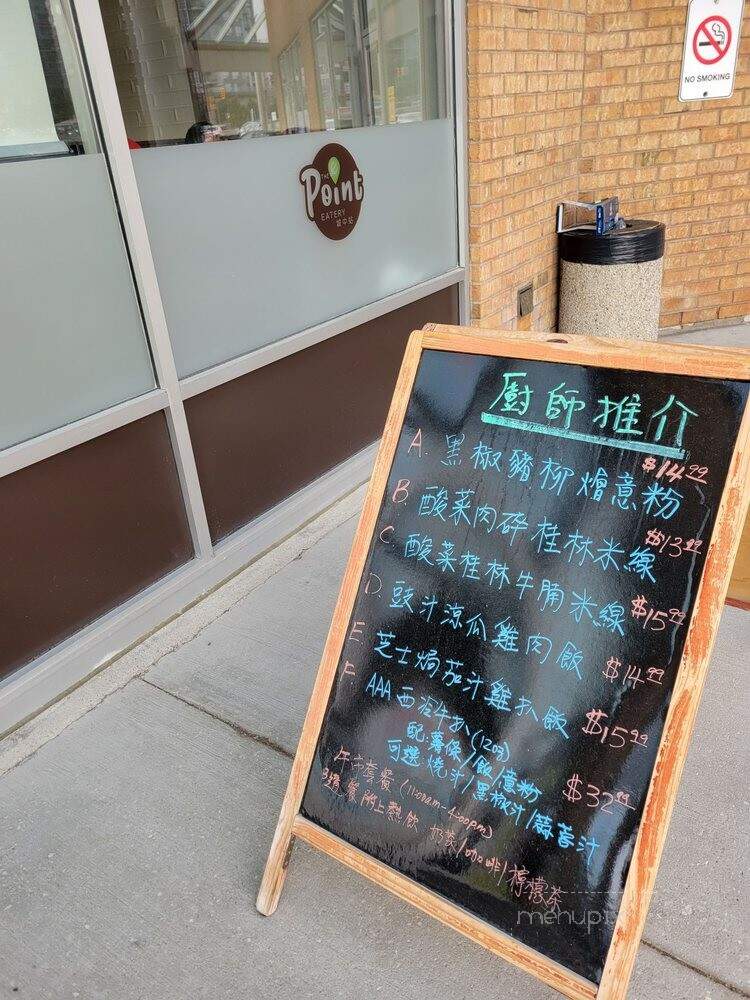 NO SMOKING
THE
Point
EATERY
廚師推介
A. 黑椒豬柳燴意粉 $14.99
B. 酸菜肉碎桂林米線 $13.99
C. 酸菜桂林牛腩米線 $15.99
D. 豉汁涼瓜雞肉飯 $14.99
E. 芝士焗茄汁雞扒飯 $15.99
F. AAA西冷牛扒(12oz) $32.99
配:薯條/飯/意粉
可選:燒汁/黑椒汁/蒜蓉汁
午市套餐 (11:00am-4:00pm)
餐附上熱飲 奶茶/咖啡/檸檬茶
menupix